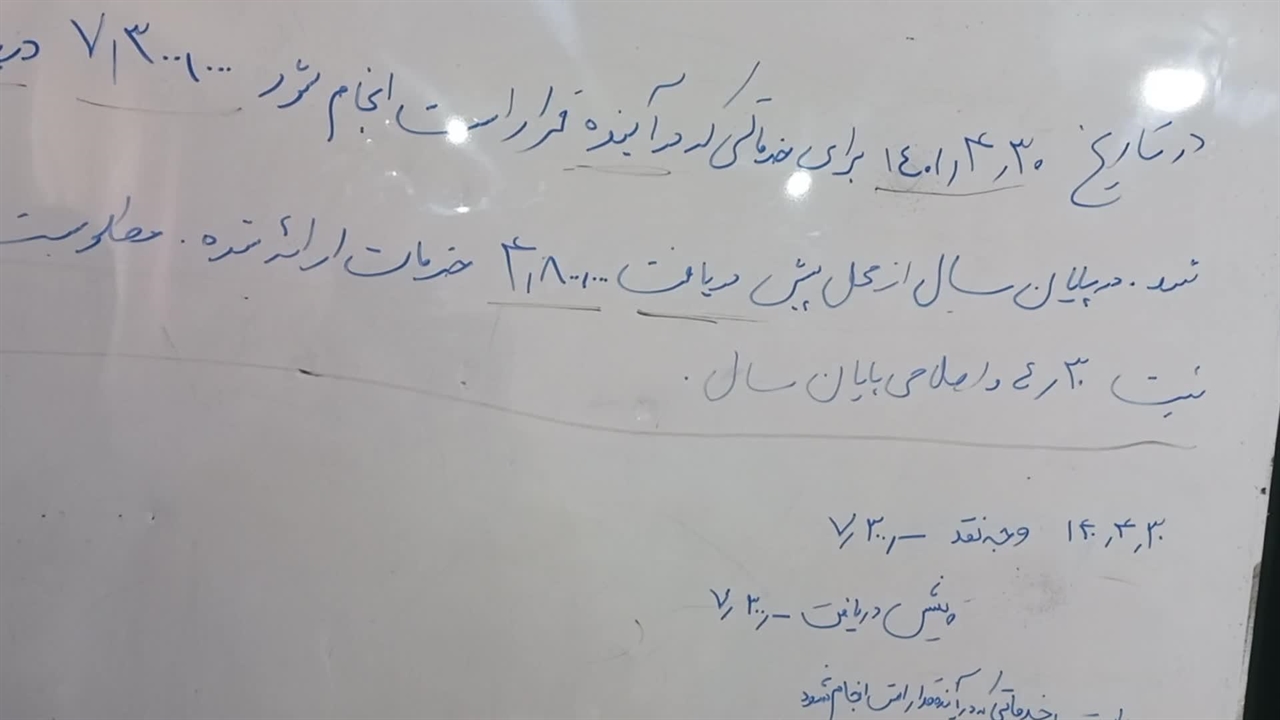 در تاریخ ۱٤۰۱٫۴٫۳۰ برای خدماتی که در آینده قرار است انجام شود ۷٫۳۰۰٫۰۰۰
شد . در پایان سال از محل پیش دریافت ۴٫۸۰۰٫۰۰۰ خدمات ارائه شده . مطلوبست
ثبت ٤٫۳۰ و اصلاحی پایان سال .
وجه نقد ۷٫۳۰۰٫—
پیش دریافت ۷٫۳۰۰٫—
خدماتی که در آینده قرار است انجام شود